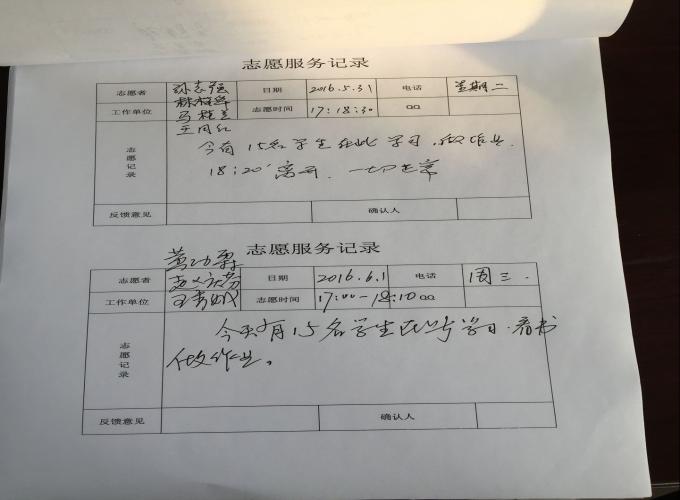 志愿服务记录
志愿者 孙志强 日期 2016.5.31 电话 星期二
工作单位 志愿时间 17:18:30 QQ
王同红
志愿记录 今有15名学生在此学习,做作业.
18:20'离开.一切正常
反馈意见 确认人
志愿服务记录
志愿者 日期 2016.6.1 电话 周三.
工作单位 志愿时间 17:00-18:10 QQ
志愿记录 今天有15名学生在此学习.看书
做作业。
反馈意见 确认人